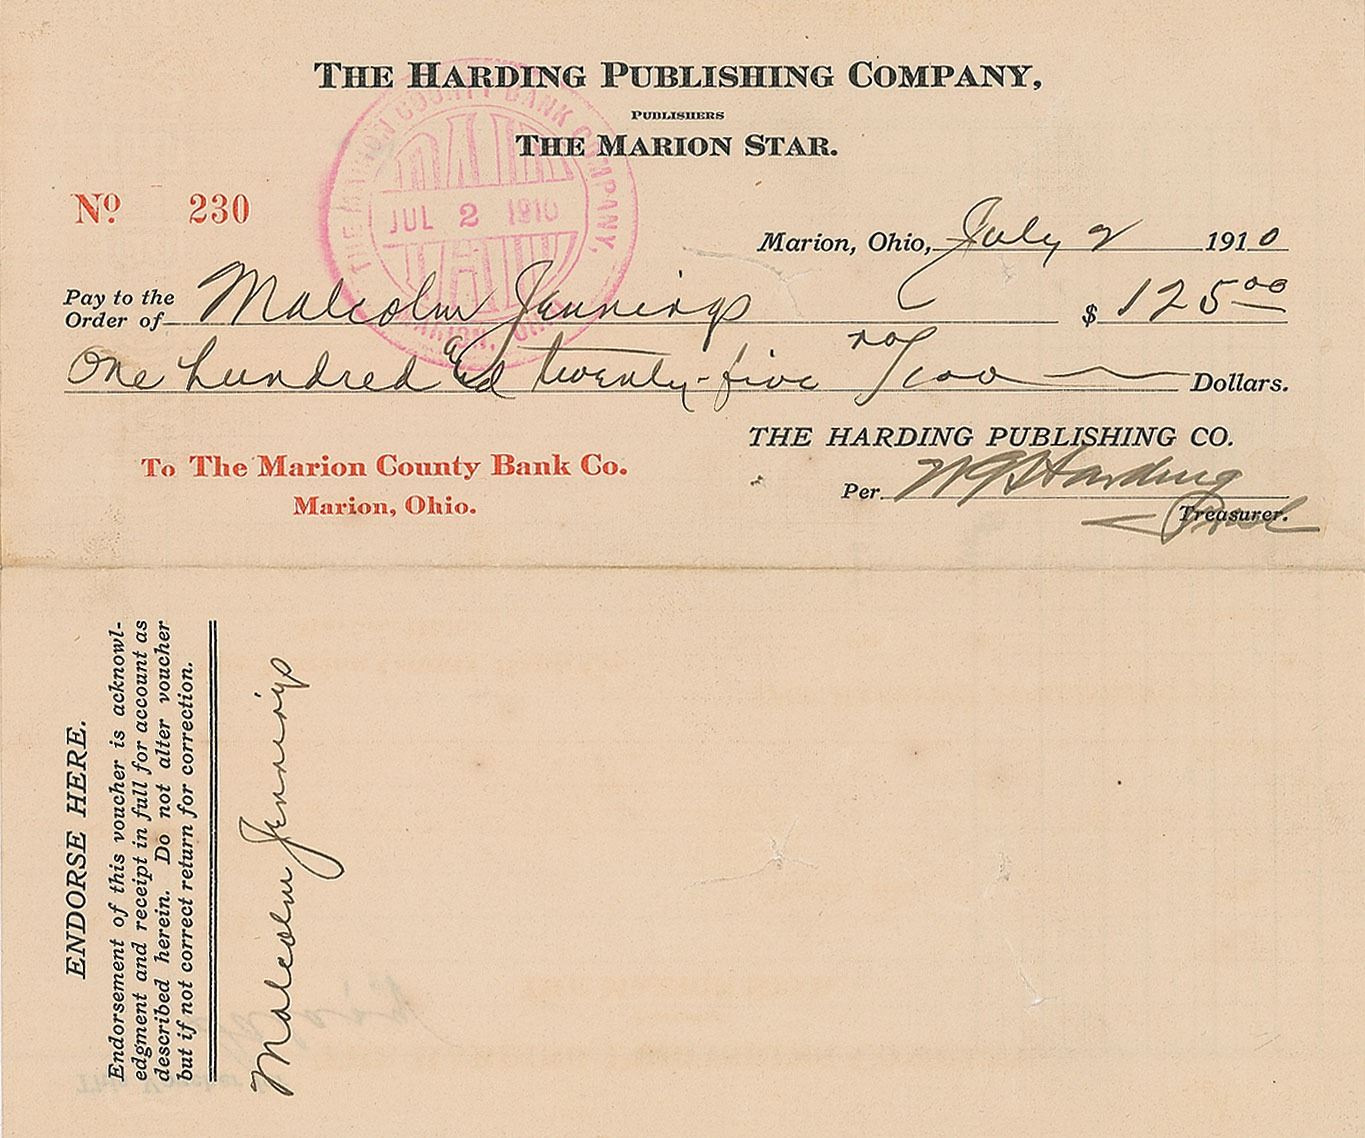 THE HARDING PUBLISHING COMPANY,
PUBLISHERS
THE MARION STAR.
THE MARION COUNTY BANK COMPANY,
PAID
JUL 2 1910
MARION, OHIO
No 230
Marion, Ohio, July 2 1910
Pay to the
Order of Malcolm Jennings $ 125.00
One hundred and twenty-five no/100 Dollars.
THE HARDING PUBLISHING CO.
To The Marion County Bank Co.
Marion, Ohio.
Per W G Harding
Treasurer.
ENDORSE HERE.
Endorsement of this voucher is acknowl-
edgment and receipt in full for account as
described herein. Do not alter voucher
but if not correct return for correction.
Malcolm Jennings